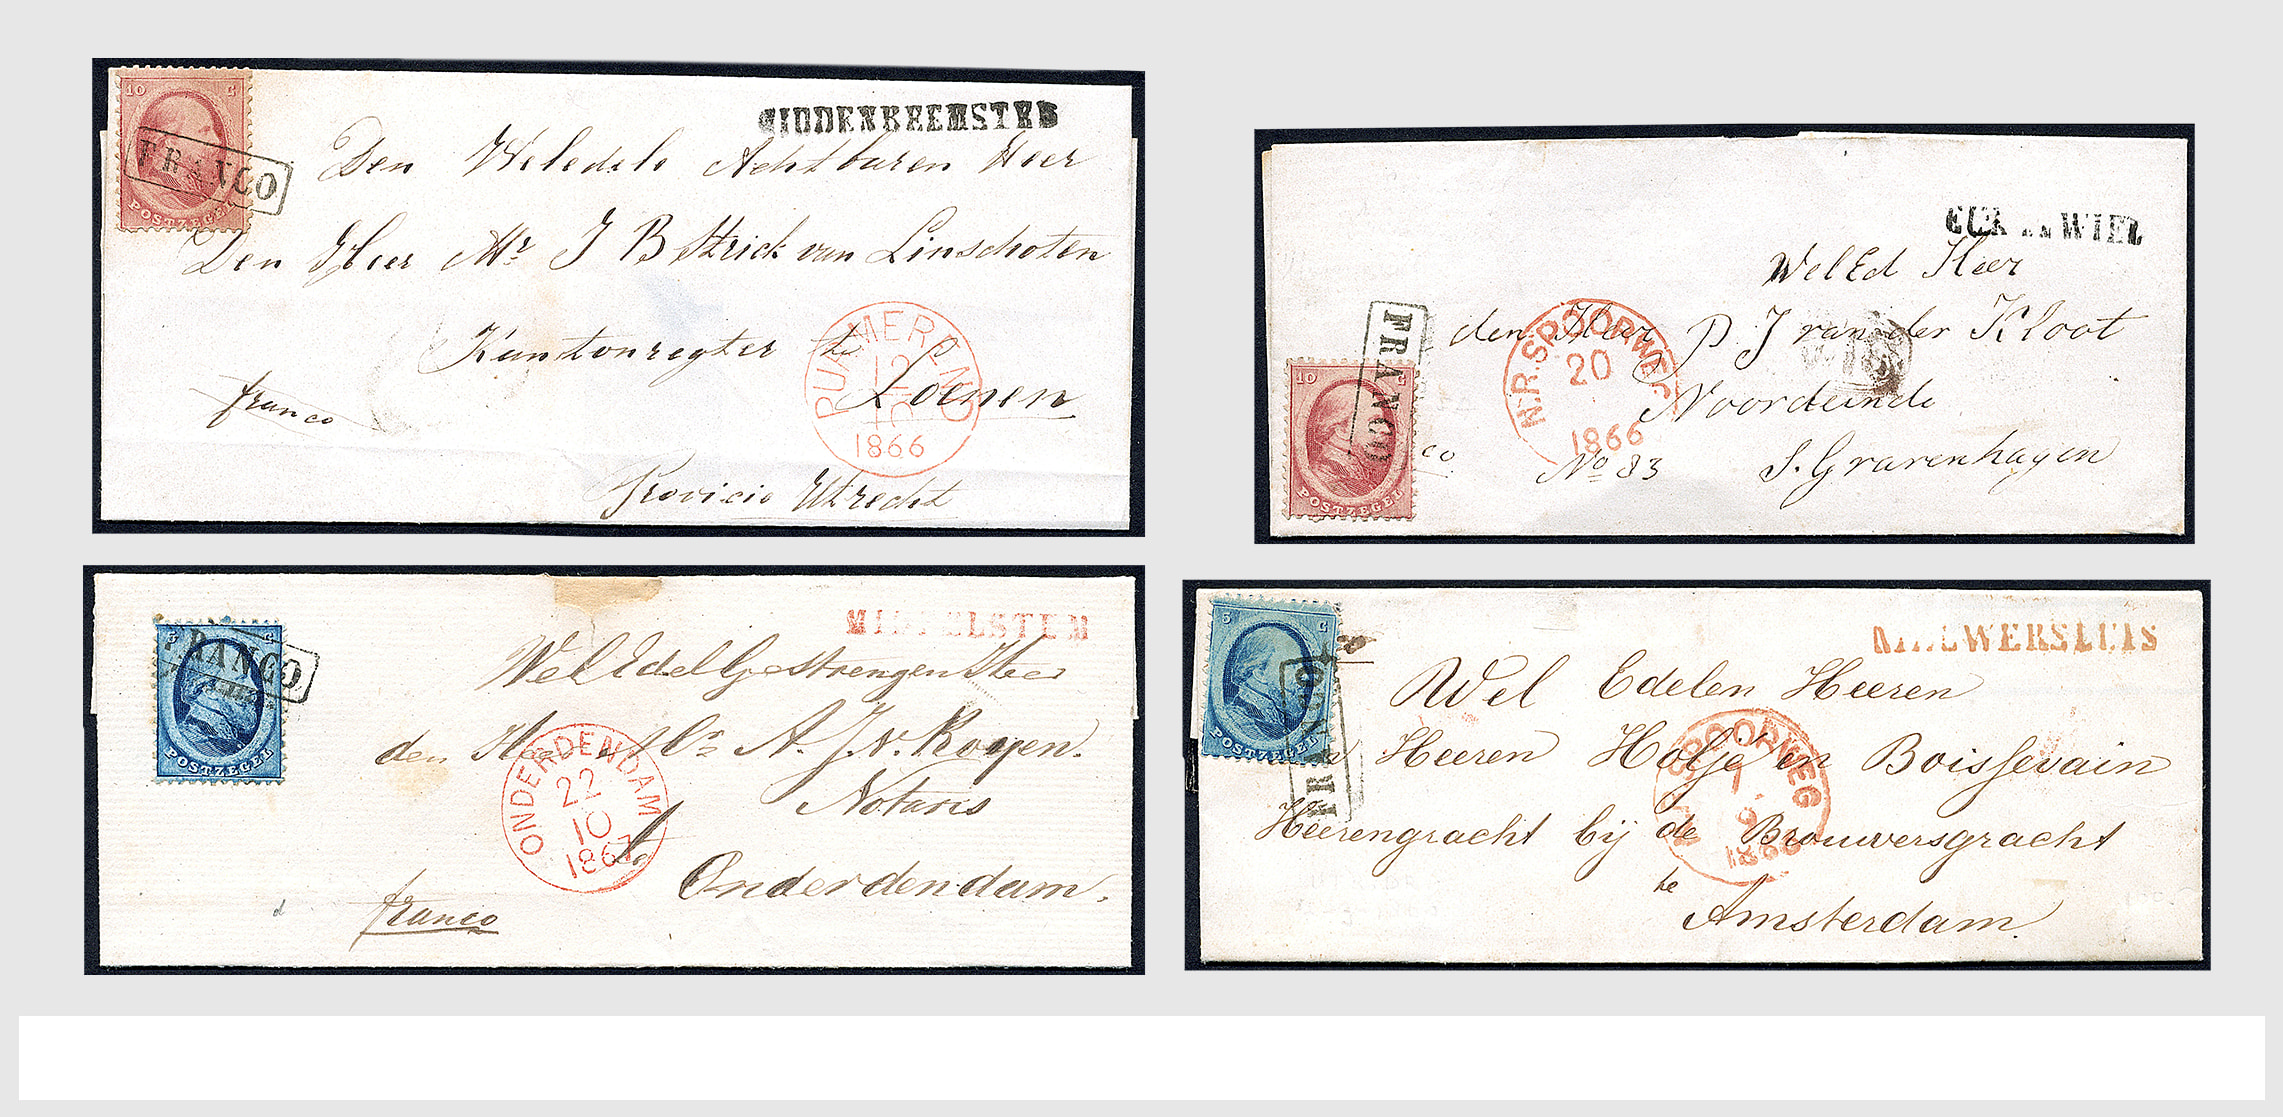 10 C
FRANCO
POSTZEGEL
MIDDENBEEMSTER
Den Weledele Achtbaren Heer
Den Heer Mr J B Strick van Linschoten
Kantonregter te
Loenen
franco
Provicie Utrecht
PURMEREND
12
10
1866
ECK WIEL
WelEd Heer
den Heer P. J van der Kloot
Noordeinde
No 83 S. Gravenhagen
FRANCO
10 C
POSTZEGEL
co
N.R.SPOORWEG
20
1866
5 C
FRANCO
POSTZEGEL
MIDDELSTUM
WelEdelGestrengen Heer
den Heer Mr A. J. v. Royen.
Notaris
te
Onderdendam.
franco
ONDERDENDAM
22
10
1867
5 C
FRANCO
POSTZEGEL
NIEUWERSLUIS
Wel Edelen Heeren
Heeren Holje en Boissevain
Heerengracht bij de Brouwersgracht
te
Amsterdam.
SPOORWEG